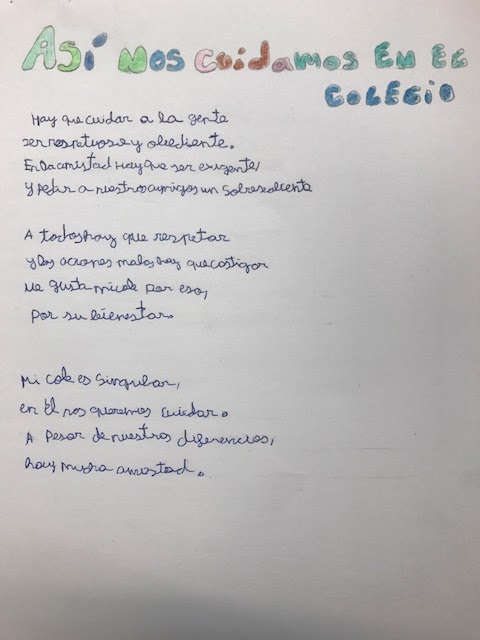 Así nos cuidamos en el
colegio
Hay que cuidar a la gente
ser respetuoso y obediente.
En la amistad hay que ser exigente,
y pedir a nuestros amigos un sobresaliente
A todos hay que respetar
y las acciones malas hay que castigar
Me gusta mi cole por eso,
por su bienestar.
Mi cole es singular,
en él nos queremos cuidar.
A pesar de nuestras diferencias,
hay mucha amistad.